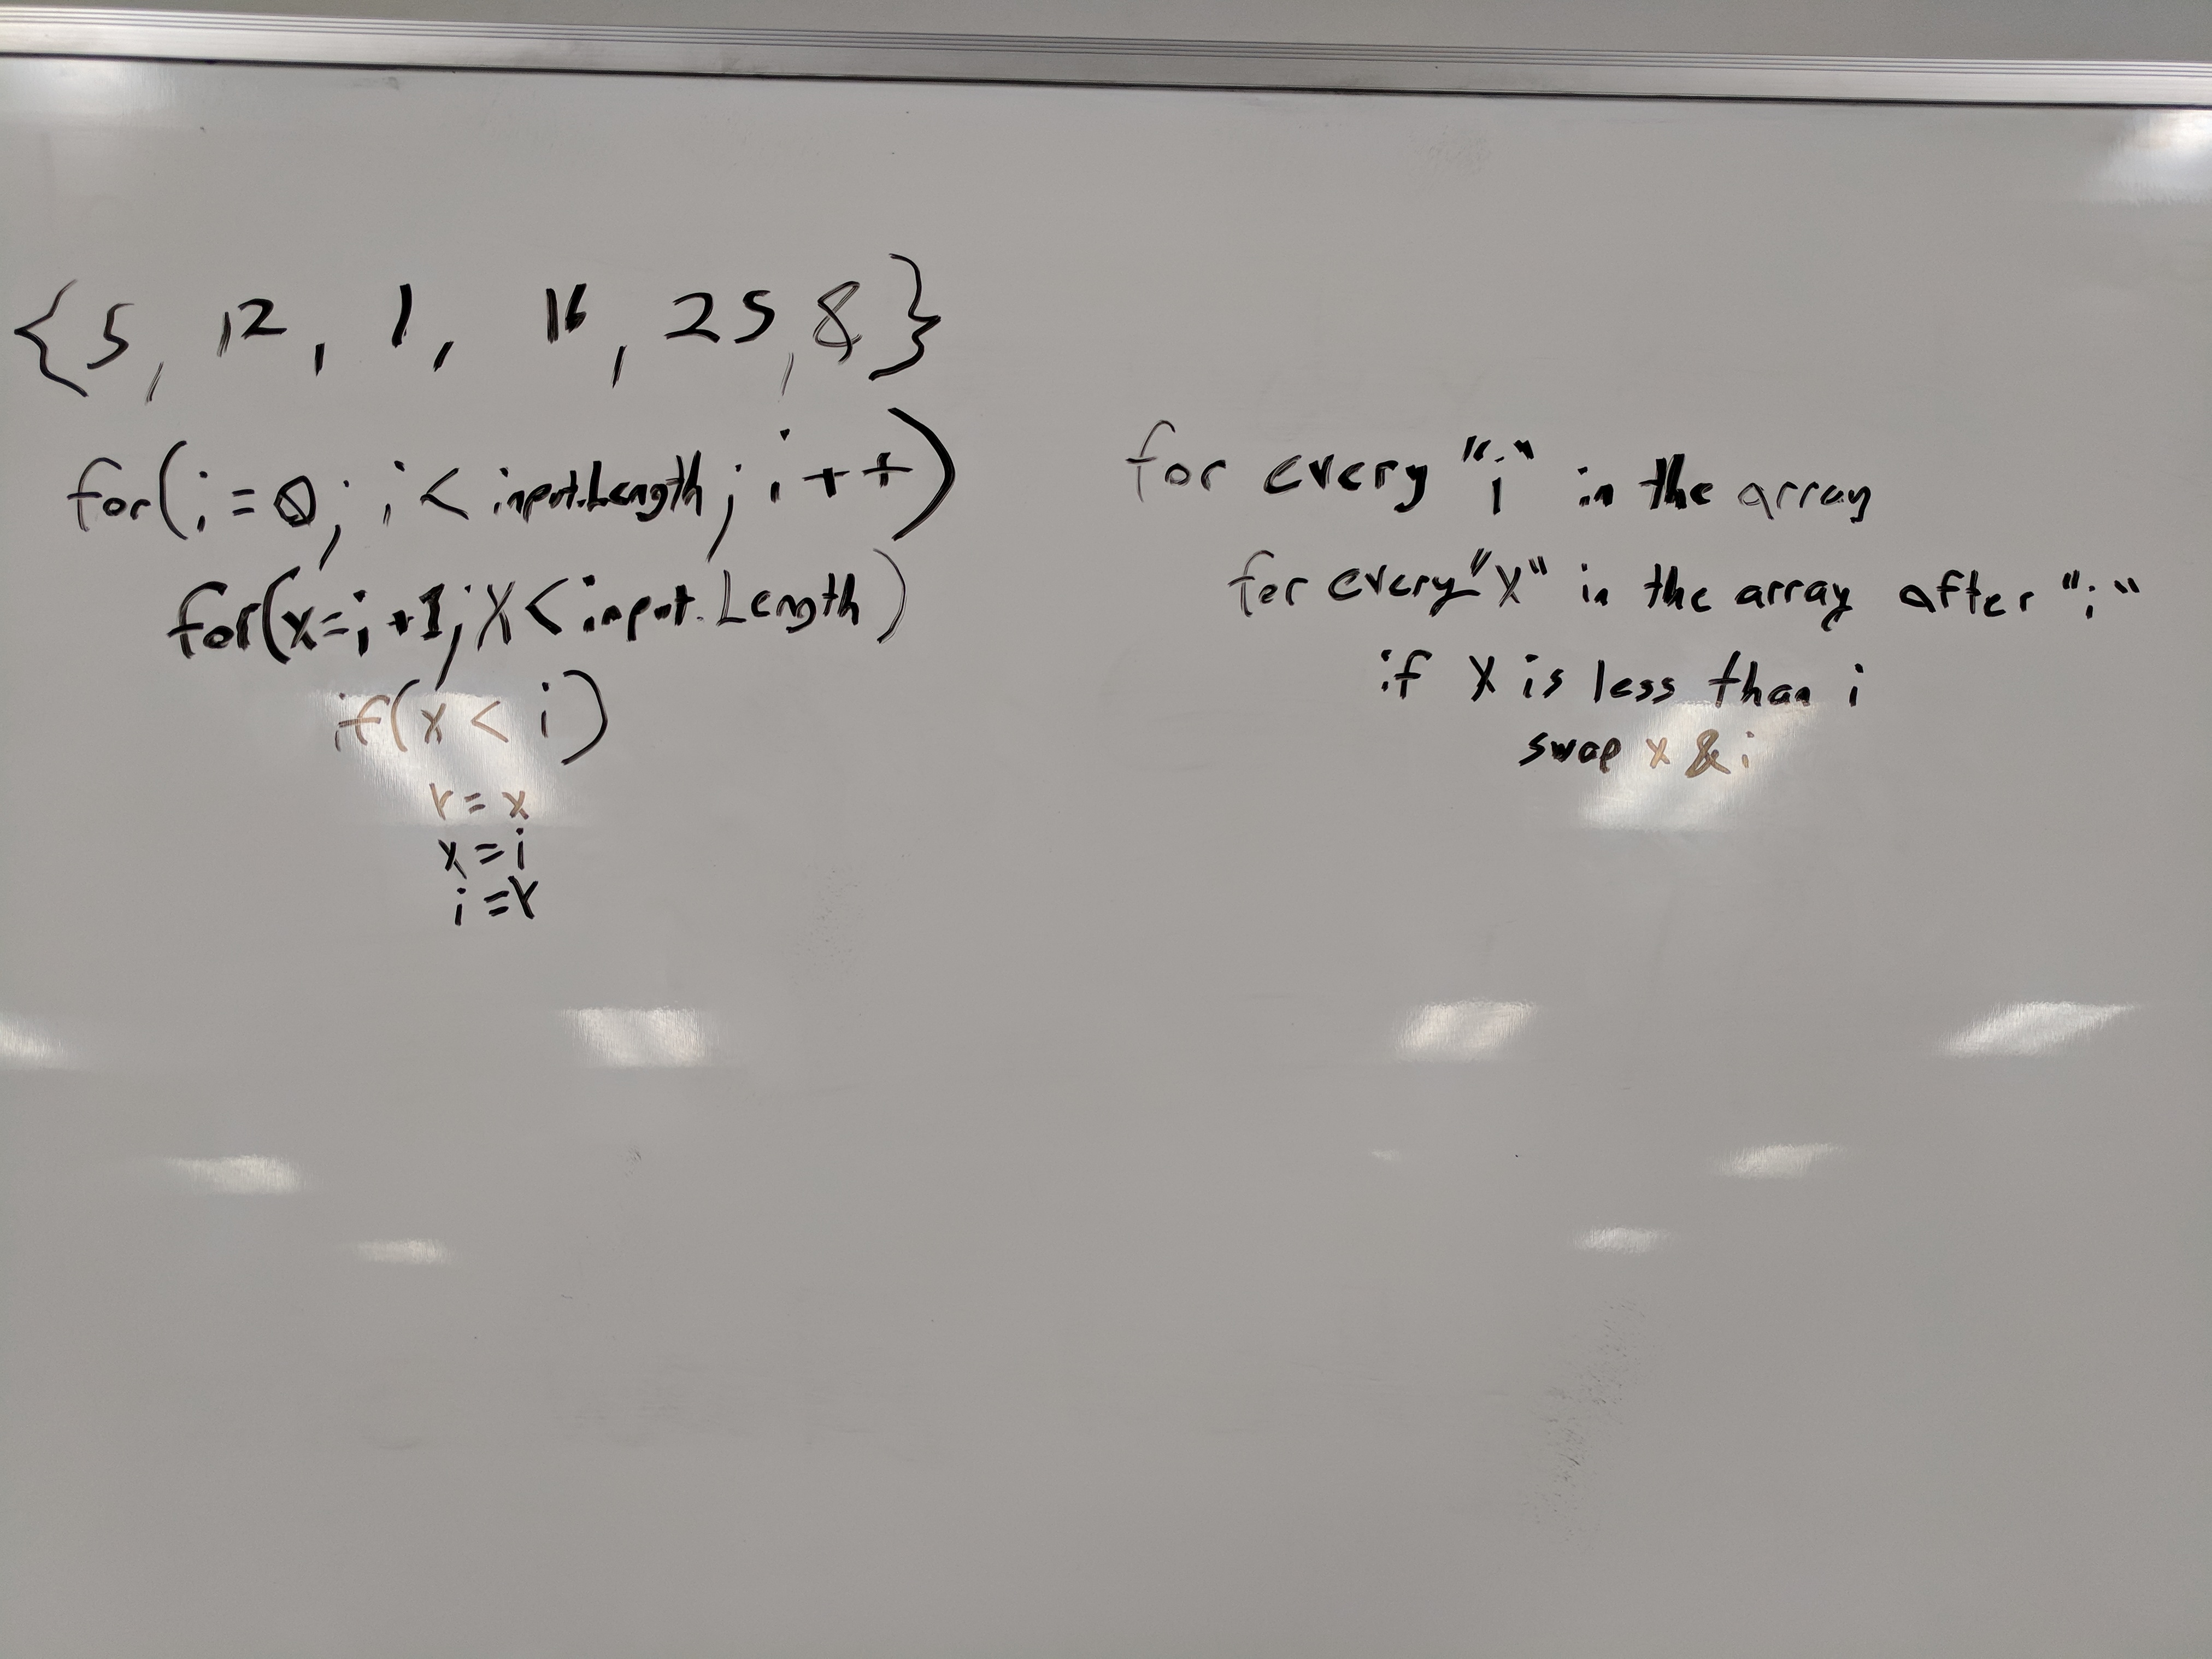 {5, 12, 1, 16, 25, 8}
for(i=0; i < input.Length; i++)
for(x=i+1; X < input.Length)
if(x < i)
r = x
x = i
i = r
for every "i" in the array
for every "X" in the array after "i"
if X is less than i
swap x & i